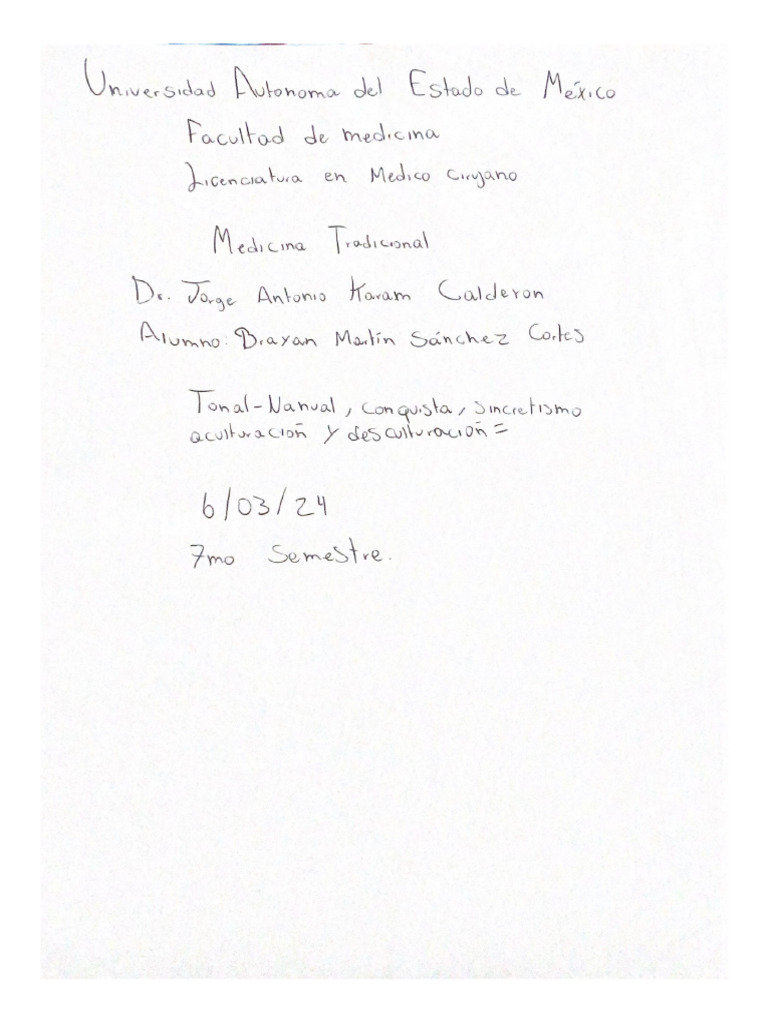 Universidad Autonoma del Estado de México
Facultad de medicina
Licenciatura en Medico Cirujano
Medicina Tradicional
Dr. Jorge Antonio Karam Calderon
Alumno: Brayan Martín Sánchez Cortes
Tonal-Nanual, conquista, sincretismo
aculturación y desculturación=
6/03/24
7mo Semestre.